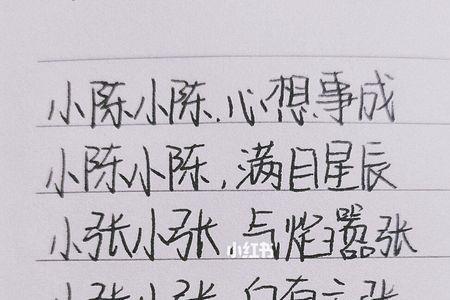 小陈小陈,心想事成
小陈小陈,满目星辰
小张小张 气焰嚣张
小红书
小张小张 自有主张